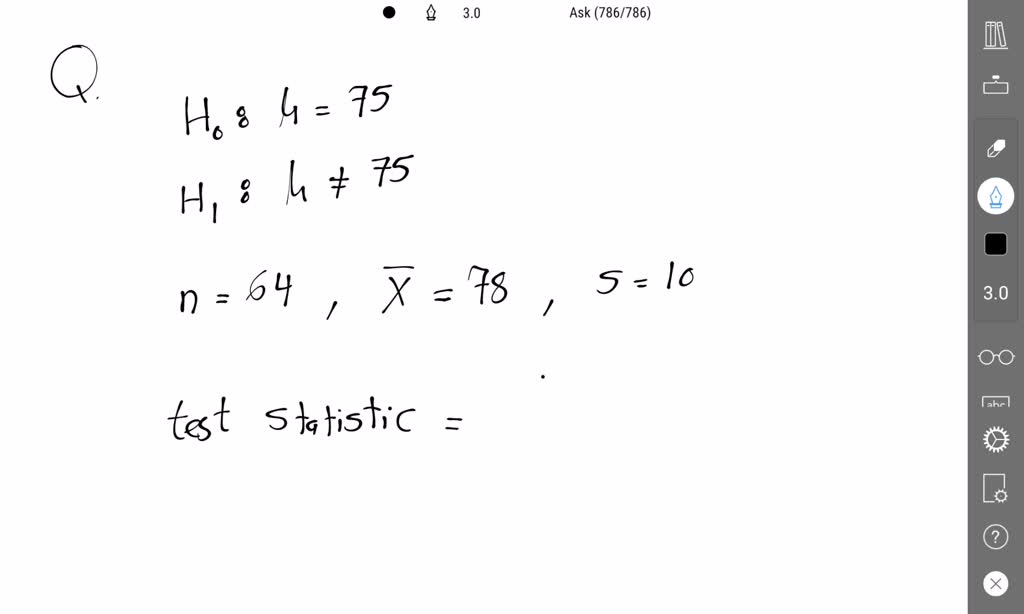 3.0 Ask (786/786)
Q.
H₀: μ = 75
H₁: μ ≠ 75
n = 64, X̄ = 78, S = 10
test statistic =
3.0
abc
?